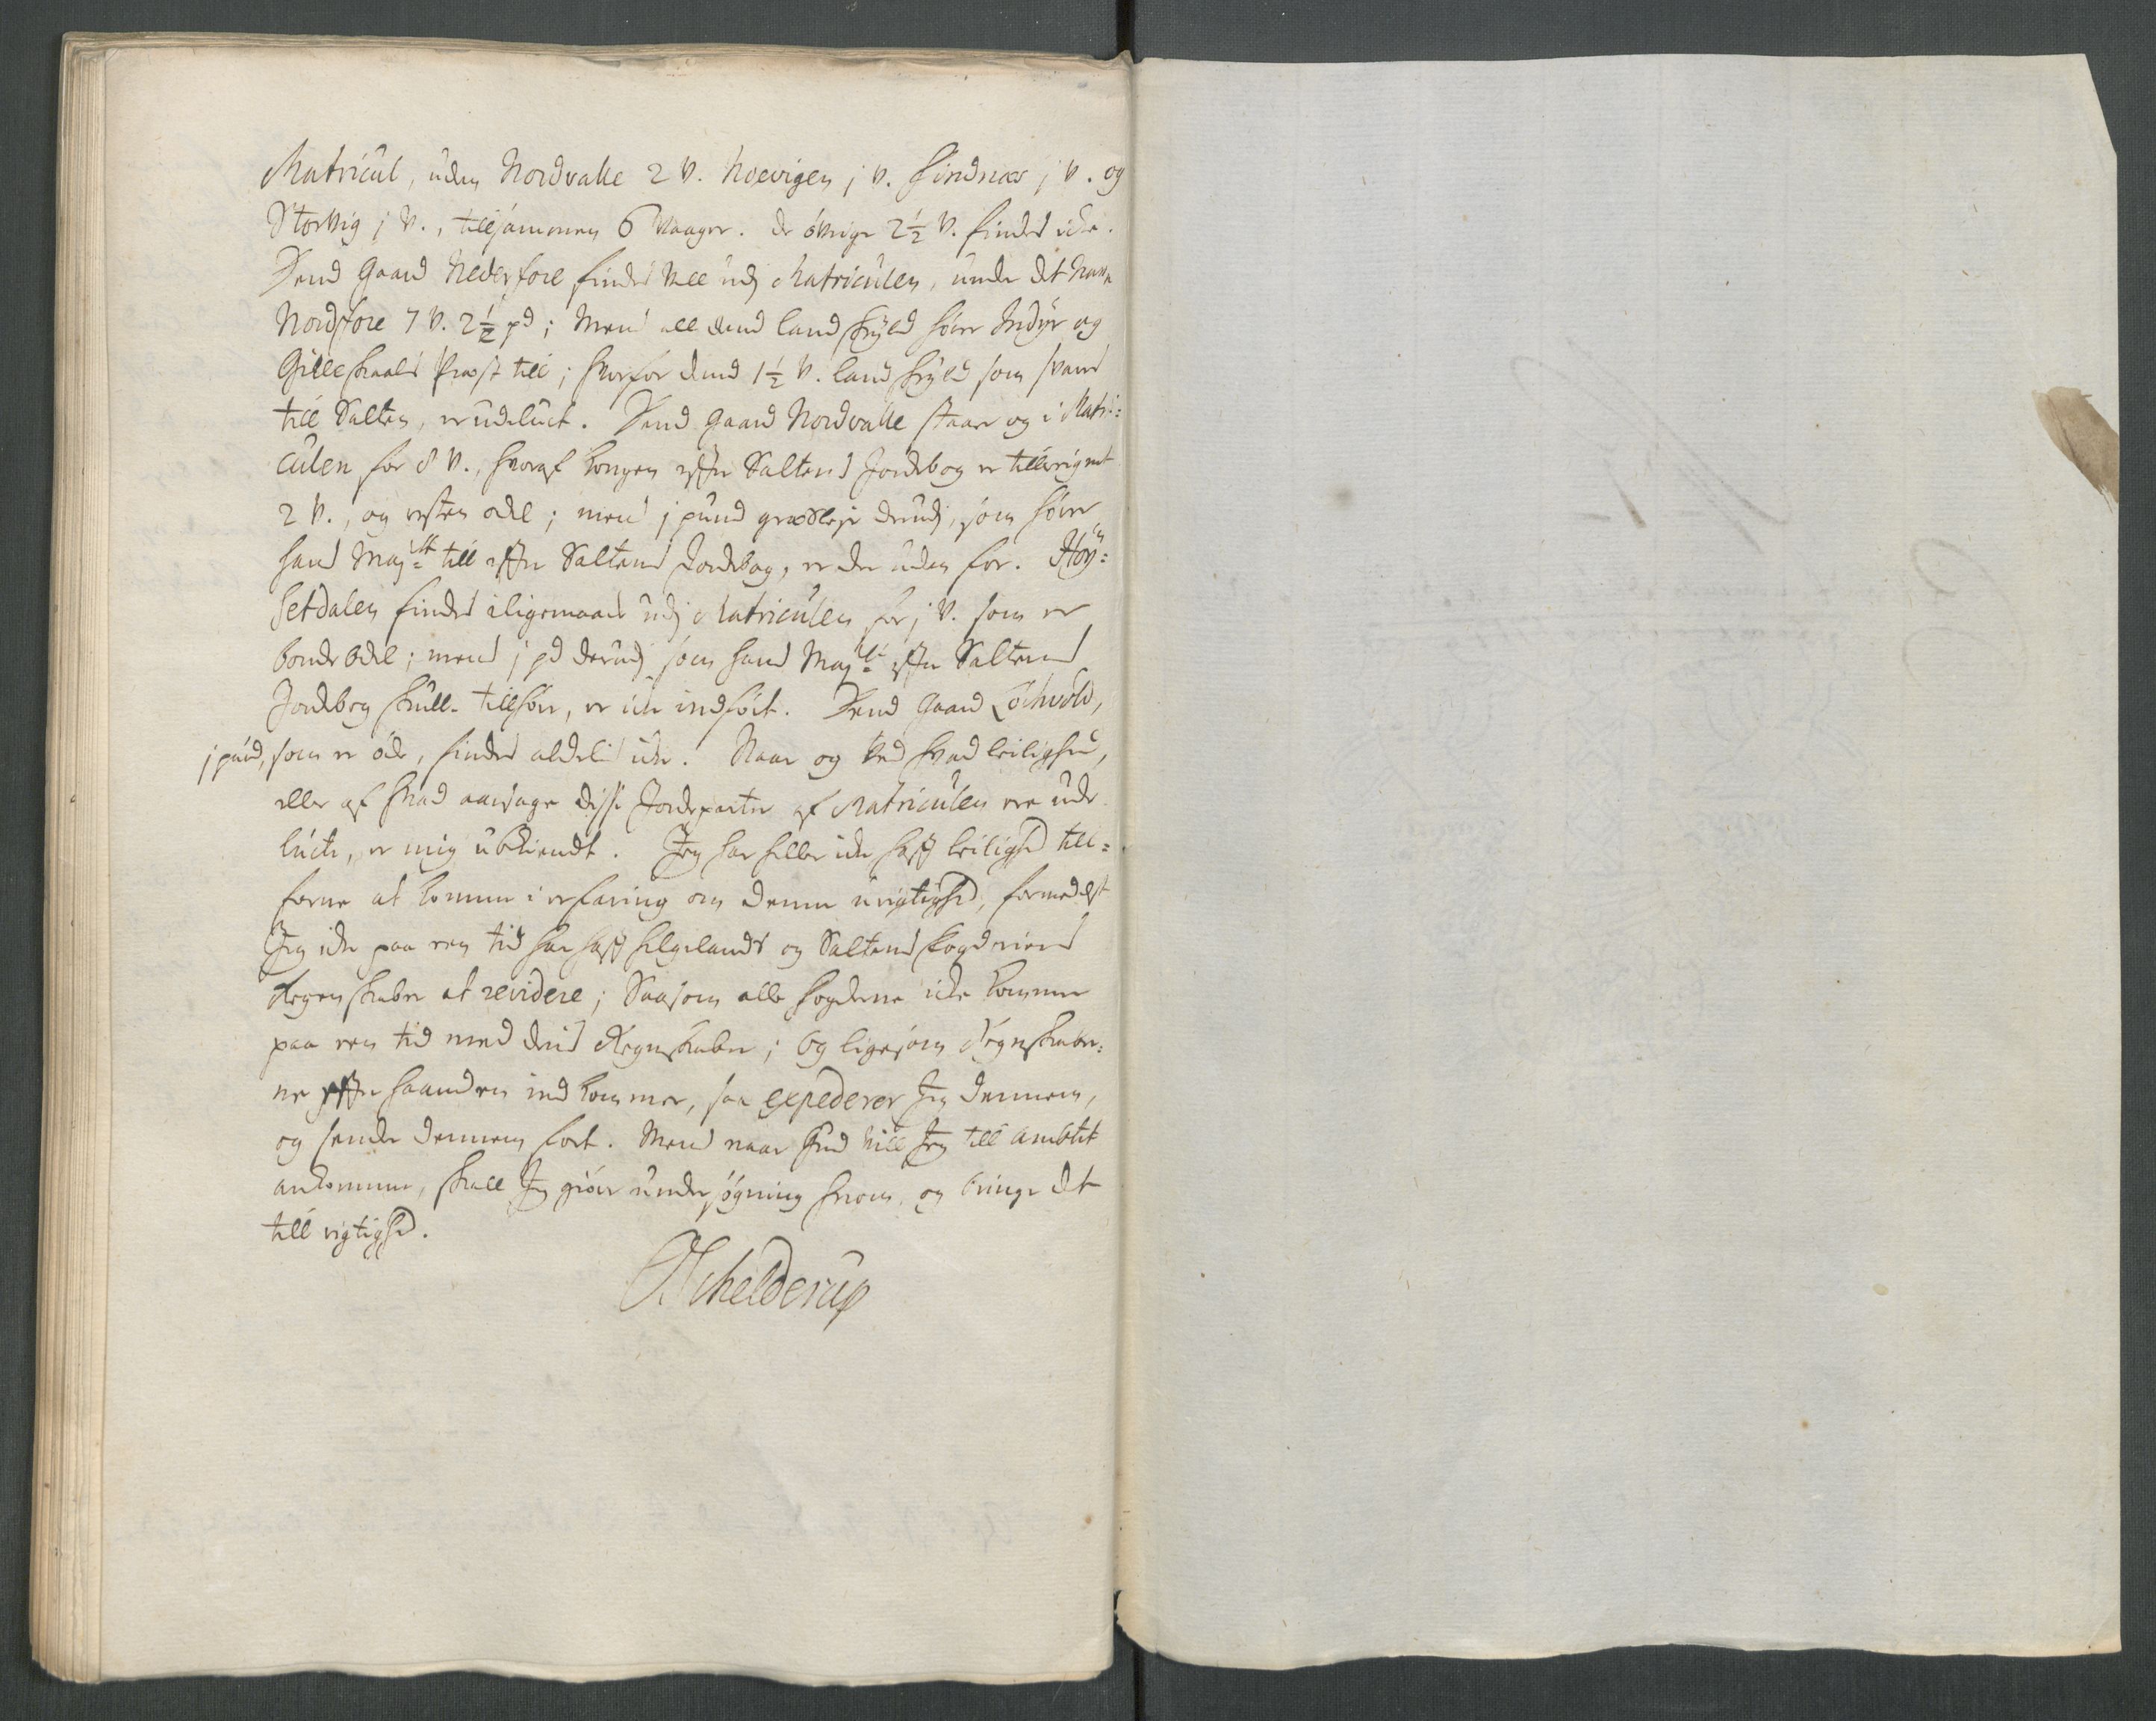 Matricul, uden Nordvalle 2 V. Noevigen j V. Findnæs j V. og
Storvig j V., tilsammen 6 Vaager. De övrige 2½ V. findes icke.
Dend Gaard Nederfore findes vell udj Matriculen, under det Navn
Nordfore 7 V. 2½ pd; Mend all dend landskyld hörer Indyr og
Gilleskaals Præst till; hvorfor dend 1½ V. landskyld som svares
till Salten, er udeluct. Dend gaard Nordvalle staar og i Matri=
culen for 8 V., hvoraf Kongen efter Saltens Jordebog er tillegnet
2 V., og resten odel; mens j pund græsleje derudj, som hörer
hans Maj:tt till efter Saltens Jordebog, er der uden for. Höy=
setdalen findes iligemaade udj Matriculen for j V. som er
bonde odel; mens j pd derudj som hans Maj:tt efter Saltens
Jordebog skulle tillhöre, er icke indfört. Dend gaard Löchvold,
j pund, som er öde, findes aldelis icke. Naar og ved hvad leilighed,
eller af hvad aarsage disse Jordeparter af Matriculen ere ude
lucte, er mig ubekiendt. Jeg har heller icke haft leilighed till=
forne at komme i erfaring om denne urigtighed, formedelst
Jeg icke paa een tid har haft Helgelands og Saltens fogderiers
Regenskaber at revidere; Saasom alle fogderne icke kommer
paa een tid med deris Regnskaber; og ligesom Regnskaber=
ne efter haanden indkommer, saa expederer Jeg dennem,
og sender dennem fort. Mens naar Gud vill Jeg till Ambtet
ankommer, skall Jeg giöre undersögning herom, og bringe det
till rigtighed.
Schelderup